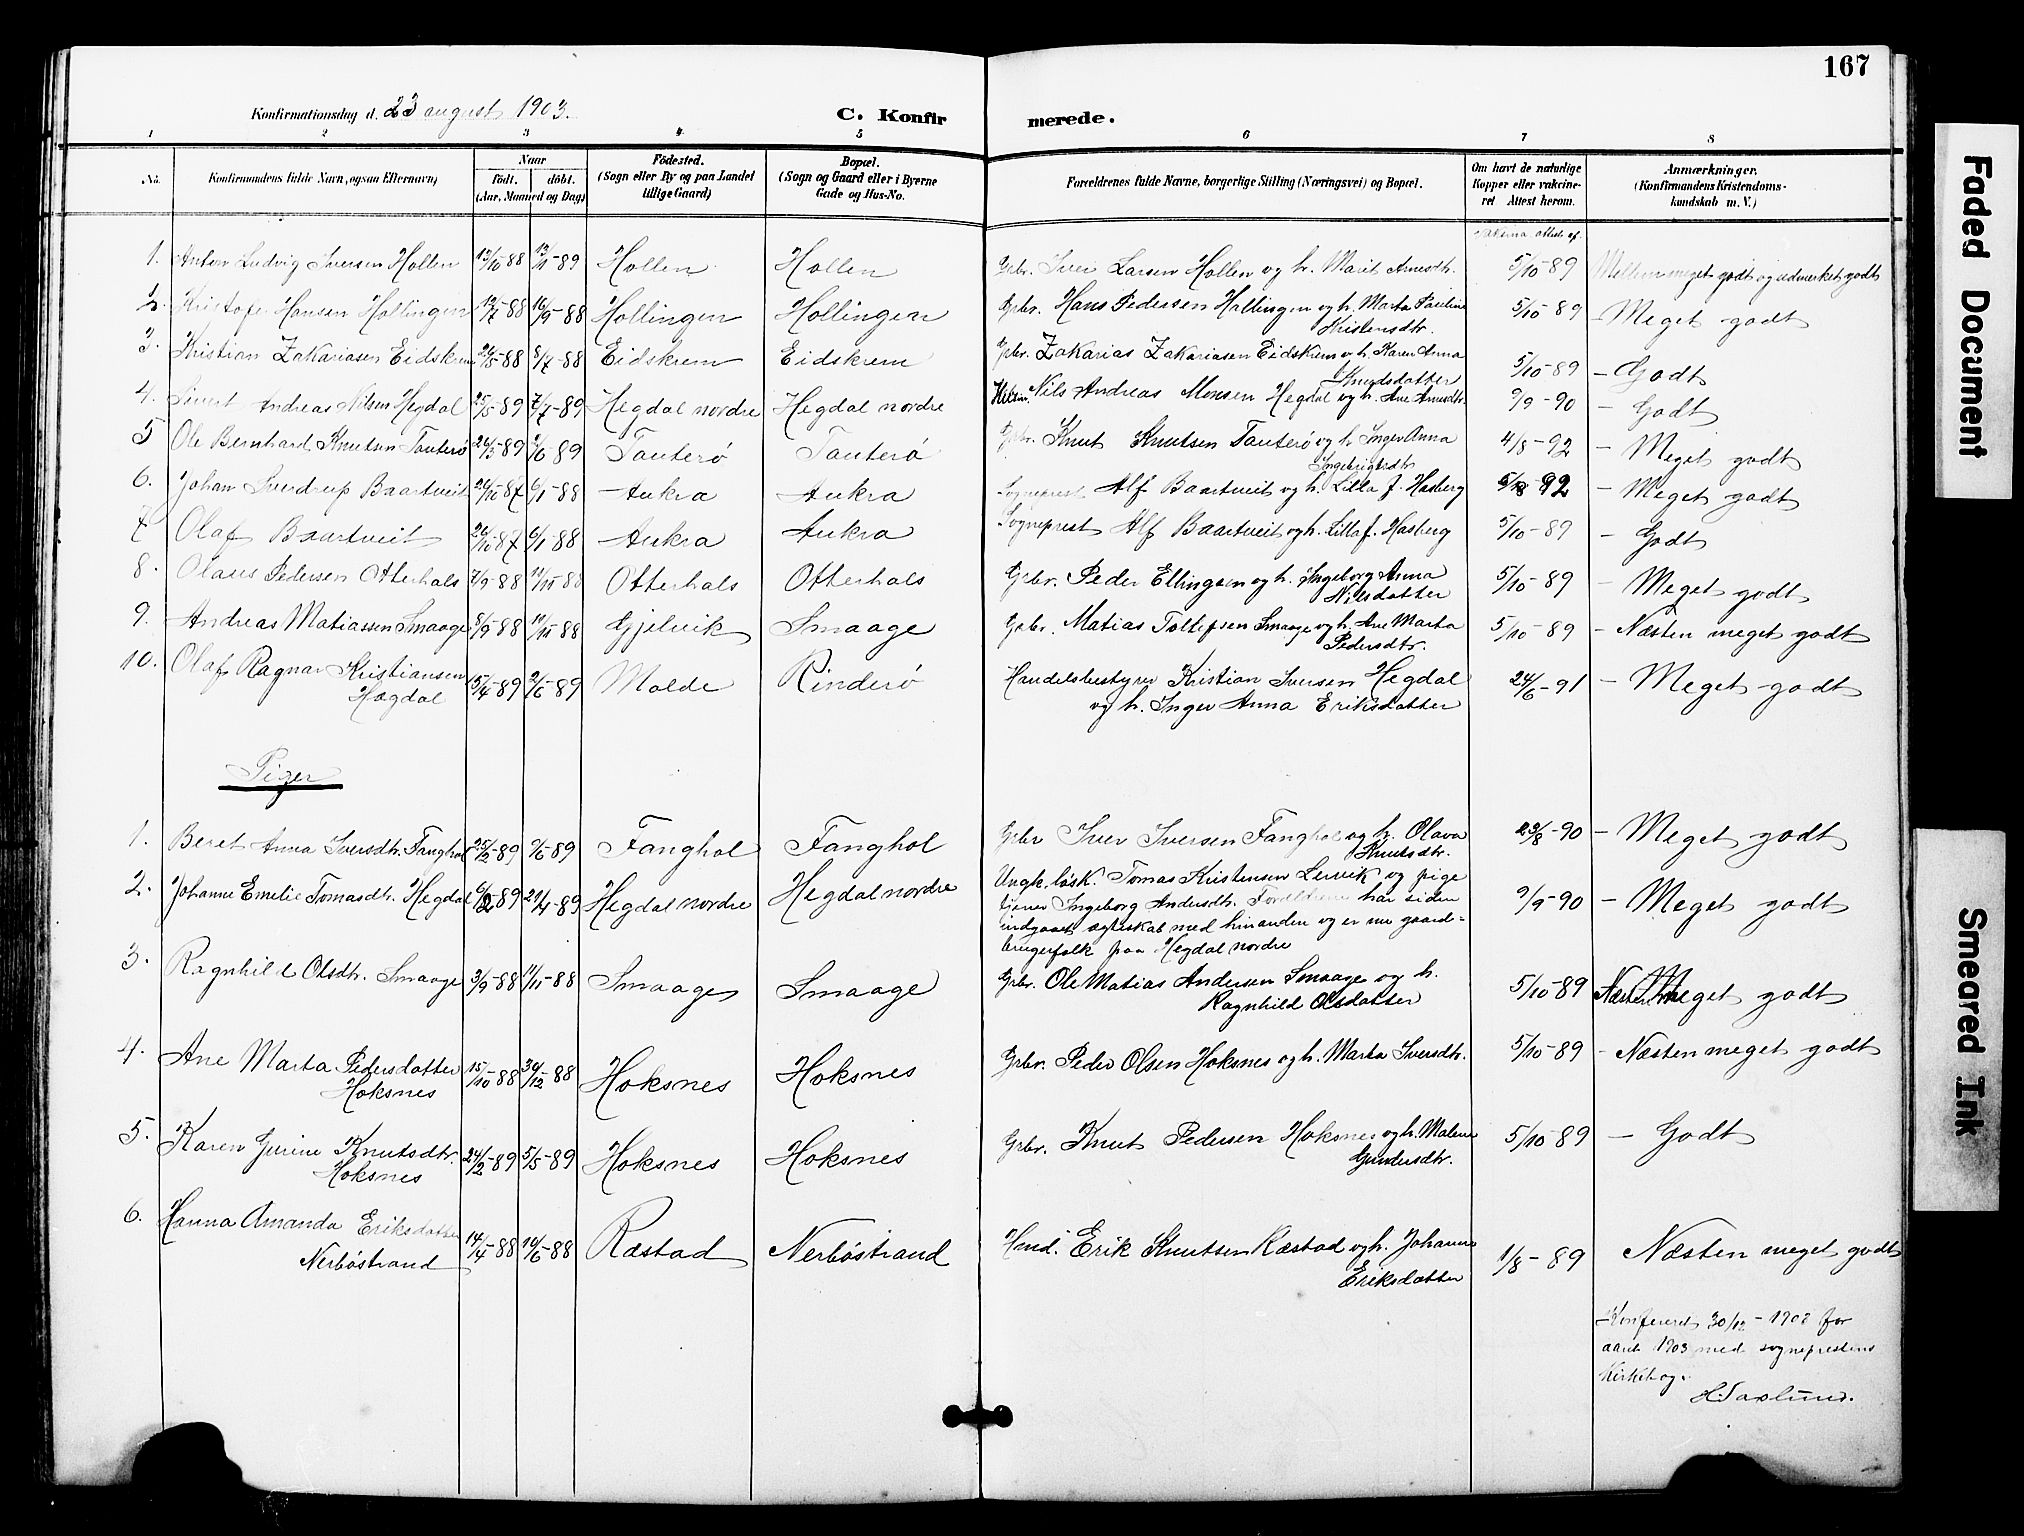 167
Konfirmationsdag d. 23 august 1903.
C. Konfirmerede.
1 2 3 4 5 6 7 8
No.
Konfirmandens fulde Navn, ogsaa Efternavn)
Naar
födt. döbt.
(Aar, Maaned og Dag)
Födested.
(Sogn eller By og paa Landet
tillige Gaard)
Bopæl.
(Sogn og Gaard eller i Byerne
Gade og Hus-No.
Forældrenes fulde Navne, borgerlige Stilling (Næringsvei) og Bopæl.
Om havt de naturlige
Kopper eller vakcine-
ret Attest herom.
Anmærkninger.
(Konfirmandens Kristendoms-
kundskab m. V.)
1. Anton Ludvig Iversen Hollen 13/10 88 13/1-89 Hollen Hollen Grbr. Iver Larsen Hollen og h. Marit Arnesdtr. 5/10-89 Mellem meget godt og udmerket godt
2. Kristofer Hansen Hollingen 12/7-88 16/9-88 Hollingen Hollingen Grbr. Hans Pedersen Hollingen og h. Marta Pauline 5/10-89 Meget godt
Kristensdtr.
3. Kristian Zakariasen Eidskrem /5-88 8/7-88 Eidskrem Eidskrem Grbr. Zakarias Zakariasen Eidskrem o h. Karen Anna 5/10-89 - Godt
Knudsdatter
4. Sivert Andreas Nilsen Hegdal 25/5-89 7/7-89 Hegdal nordre Hegdal nordre Nils Andreas Monsen Hegdal og h. Ane Arnesdtr. 9/9-90 - Godt
5 Ole Bernhard Knutsen Tauterø 26/3-89 /6-89 Tauterø Tauterø Grbr. Knut Knutsen Tauterø og h Inger Anna 4/8-92 - Meget godt
Ingebrigtsdtr.
6. Johan Sverdrup Baartveit 26/10-87 6/1-88 Aukra Aukra Sogneprest Alf Baartveit og h. Lilla f. Hasberg 92 - Meget godt
7 Olaf Baartveit 26/10-87 6/1-88 Aukra Aukra Sogneprest Alf Baartveit og h. Lilla f. Hasberg 5/10-89 - Godt
8. Olaus Pedersen Otterhals 7/9-88 11/11-88 Otterhals Otterhals Grbr. Peder Ellingsen og h. Ingeborg Anna 5/10-89 - Meget godt
Nilsdatter
9. Andreas Matiassen Smaage 8/9-88 11/11-88 Gjelvik Smaage Grbr. Matias Tollefsen Smaage og h. Ane Marta 5/10-89 - Næsten meget godt
Pedersdtr.
10. Olaf Ragnar Kristiansen 15/4-89 2/6-89 Molde Rinderø Handelsbestyrer Kristian Iversen Hegdal 24/6-91 - Meget godt
Hægdal og h. Inger Anna Eriksdatter
Piger
1. Beret Anna Iversdtr. Fanghol 25/2-89 9/6-89 Fanghol Fanghol Grbr Iver Iversen Fanghol og h. Olava 23/8-90 - Meget godt
Knutsdtr.
2. Johanne Emelie Tomasdtr. Hegdal 6/2-89 21/4-89 Hegdal nordre Hegdal nordre Ungk. løsk. Tomas Kristensen Lervik og pige 9/9-90 - Meget godt
tjener Ingeborg Andersdtr. Forældrene har siden
indgaaet ægteskab med hinanden og er nu gaard-
brugerfolk paa Hegdal nordre
3. Ragnhild Olsdtr. Smaage 3/9-88 11/11-88 Smaage Smaage Grbr. Ole Matias Andersen Smaage og h. 5/10-89 Næsten meget godt
Ragnhild Olsdatter
4. Ane Marta Pedersdatter 15/10-88 30/12-88 Hoksnes Hoksnes Grbr. Peder Olsen Hoksnes og h. Marta Iversdtr. 5/10-89 - Næsten meget godt
Hoksnes
5. Karen Gurine Knutsdtr. 24/2-89 5/5-89 Hoksnes Hoksnes Grbr. Knut Pedersen Hoksnes og h. Malene 5/10-89 - Godt
Hoksnes Gundersdtr.
6. Hanna Amanda Eriksdatter 14/4-88 10/6-88 Ræstad Nerbøstrand Hmd. Erik Knutsen Ræstad og h. Johanne 1/8-89 Næsten meget godt
Nerbøstrand Eriksdatter
Konfereret 30/12-1908 for
aaret 1903 med sogneprestens
Kirkebog.
H. Saxlund.
Faded Document
Smeared Ink